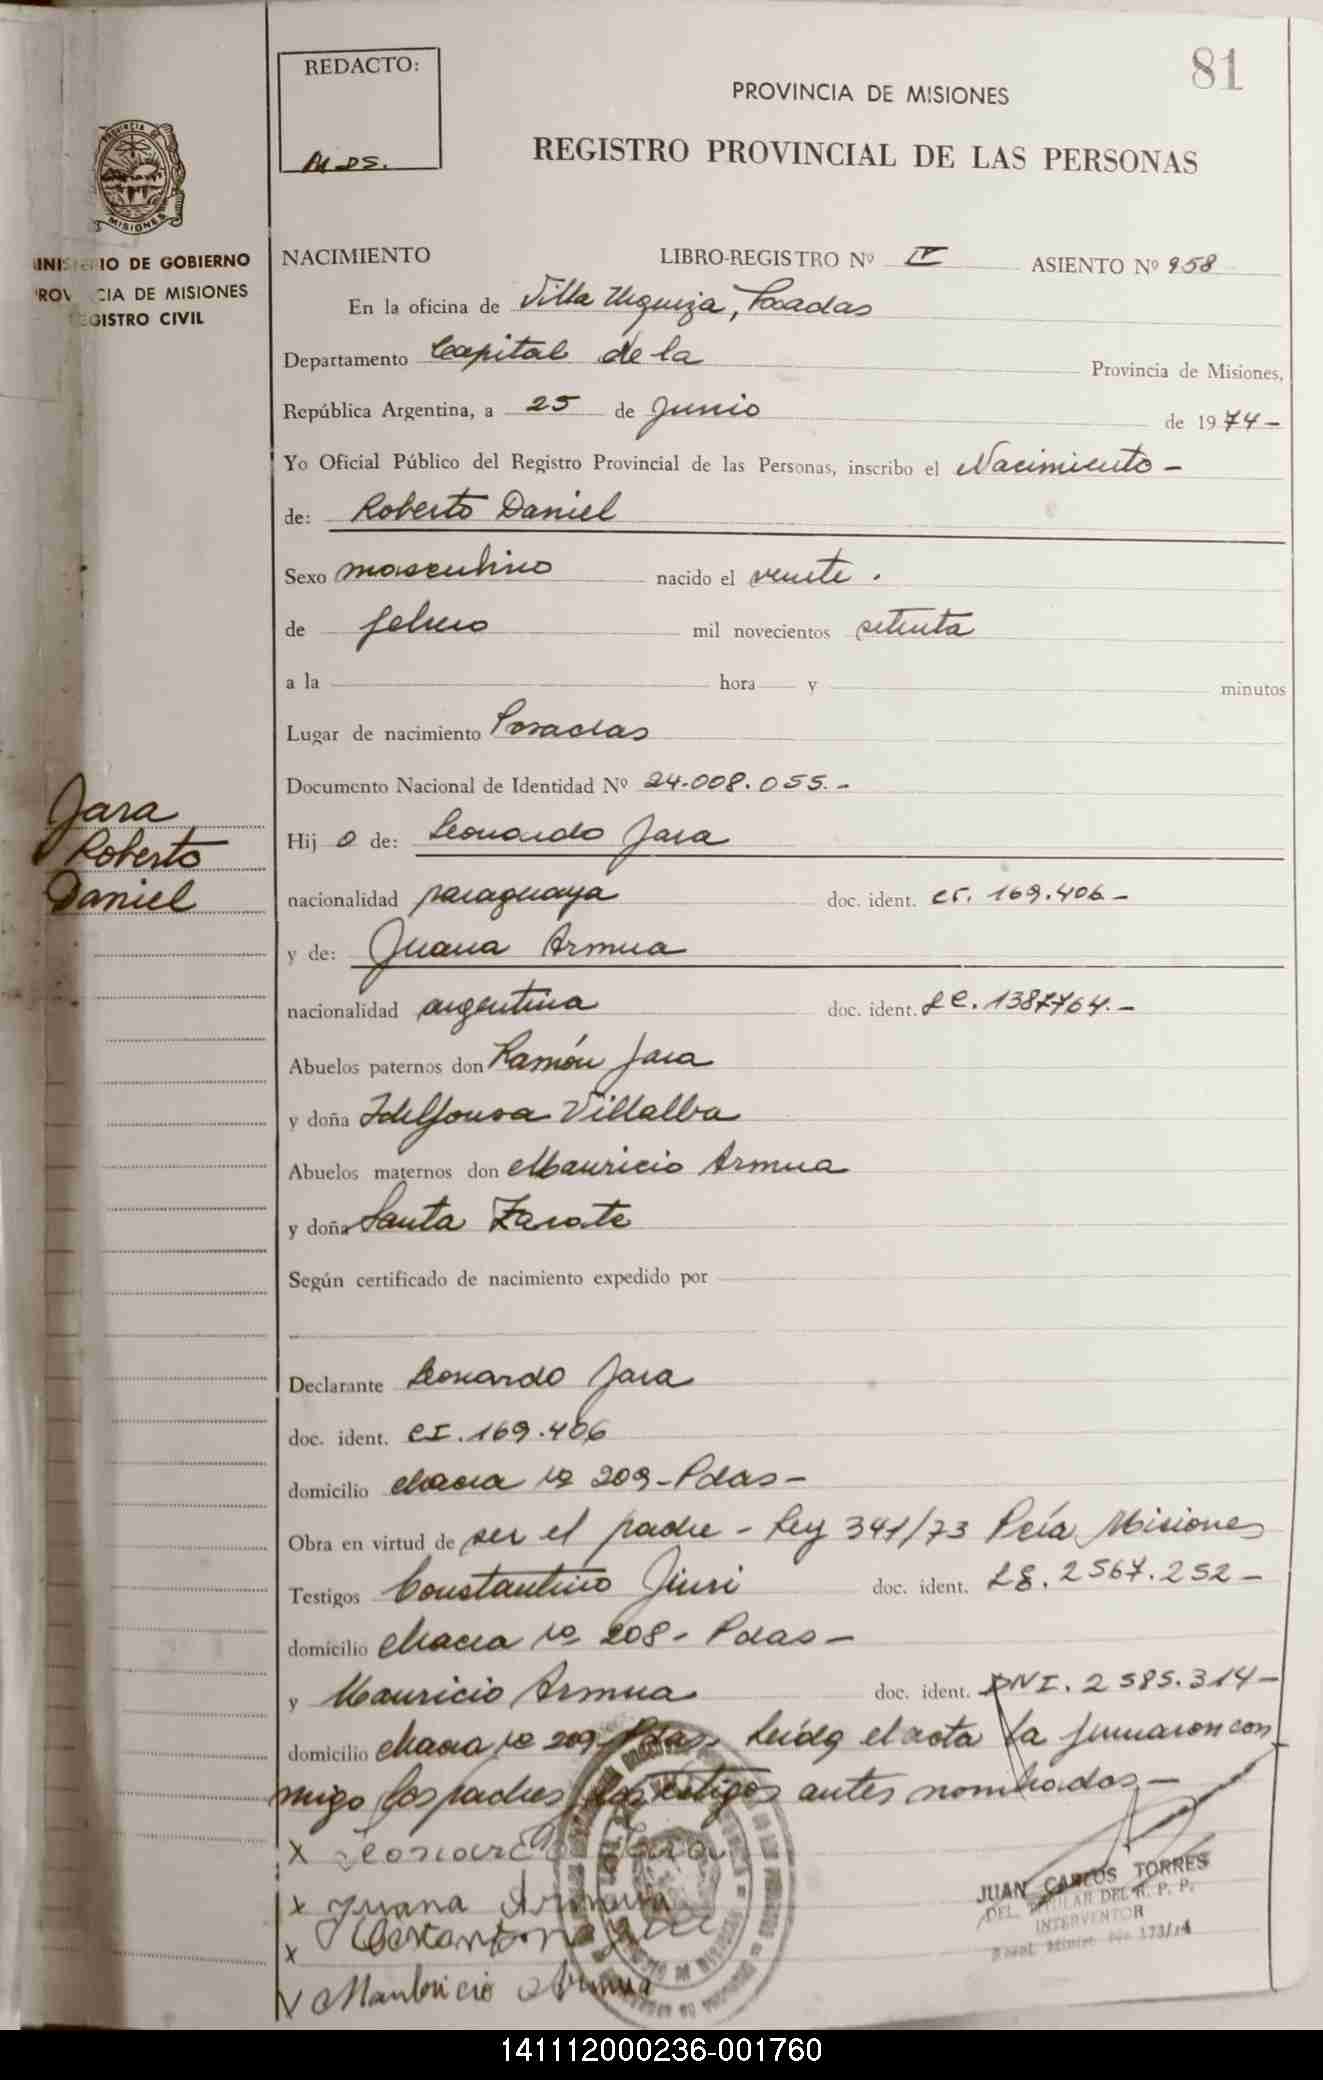 81
REDACTO:
PROVINCIA DE MISIONES
REGISTRO PROVINCIAL DE LAS PERSONAS
PROVINCIA DE
MISIONES
IO DE GOBIERNO
CIA DE MISIONES
REGISTRO CIVIL
NACIMIENTO LIBRO-REGISTRO Nº IV ASIENTO Nº 958
En la oficina de Villa Urquiza, Posadas
Departamento Capital de la Provincia de Misiones,
República Argentina, a 25 de Junio de 1974-
Yo Oficial Público del Registro Provincial de las Personas, inscribo el Nacimiento -
de: Roberto Daniel
Sexo masculino nacido el veinte.
de febrero mil novecientos setenta
a la hora y minutos
Lugar de nacimiento Posadas
Documento Nacional de Identidad Nº 24.008.055.-
Jara
Roberto
Daniel
Hij o de: Leonardo Jara
nacionalidad paraguaya doc. ident. CI. 169.406-
y de: Juana Armua
nacionalidad argentina doc. ident. LC. 1387764.-
Abuelos paternos don Ramón Jara
y doña Idelfonsa Villalba
Abuelos maternos don Mauricio Armua
y doña Santa Zarate
Según certificado de nacimiento expedido por
Declarante Leonardo Jara
doc. ident. CI. 169.406
domicilio Chacra Nº 209-Pdas-
Obra en virtud de ser el padre - Ley 341/73 Pcía Misiones
Testigos Constantino Jiuri doc. ident. LE. 2567.252-
domicilio Chacra Nº 208- Pdas-
y Mauricio Armua doc. ident. DNI. 2585.314-
domicilio Chacra Nº 209 Pdas. Leída el acta la firmaron con
migo los padres, los testigos antes nombrados.-
x Leonardo Jara
x Juana Armua
x
x Mauricio Armua
JUAN CARLOS TORRES
DEL. TITULAR DEL R. P. P.
INTERVENTOR
141112000236-001760